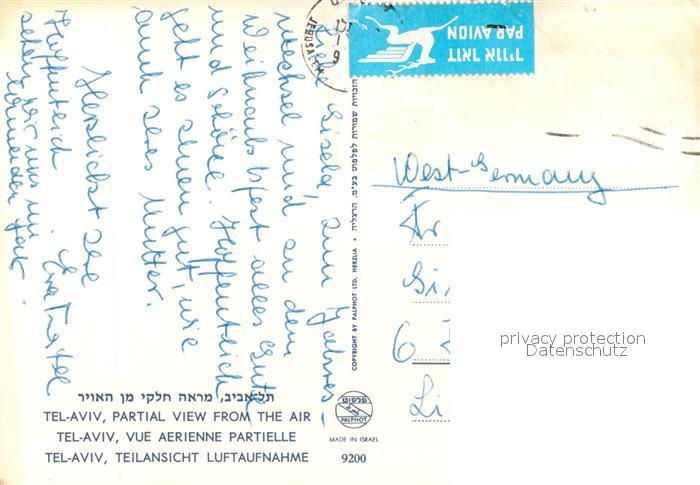 Liebe Gisela, zum Jahres-
wechsel und an dem
Weihnachtsfest alles Gute
und Schöne. Hoffentlich
geht es Ihnen gut, wie
auch Ihrer Mutter.
Herzlichst Ihre
Eva
Hoffentlich
sehen wir uns im
kommenden Jahr.
תל-אביב, מראה חלקי מן האויר
TEL-AVIV, PARTIAL VIEW FROM THE AIR
TEL-AVIV, VUE AERIENNE PARTIELLE
TEL-AVIV, TEILANSICHT LUFTAUFNAHME
הזכויות שמורות לפלפוט בע"מ. הרצליה
COPYRIGHT BY PALPHOT LTD. HERZLIA
פלפוט
PALPHOT
MADE IN ISRAEL
9200
JERUSALEM
דואר אויר
PAR AVION
West-Germany
Fr
Gi
6
Li
privacy protection
Datenschutz